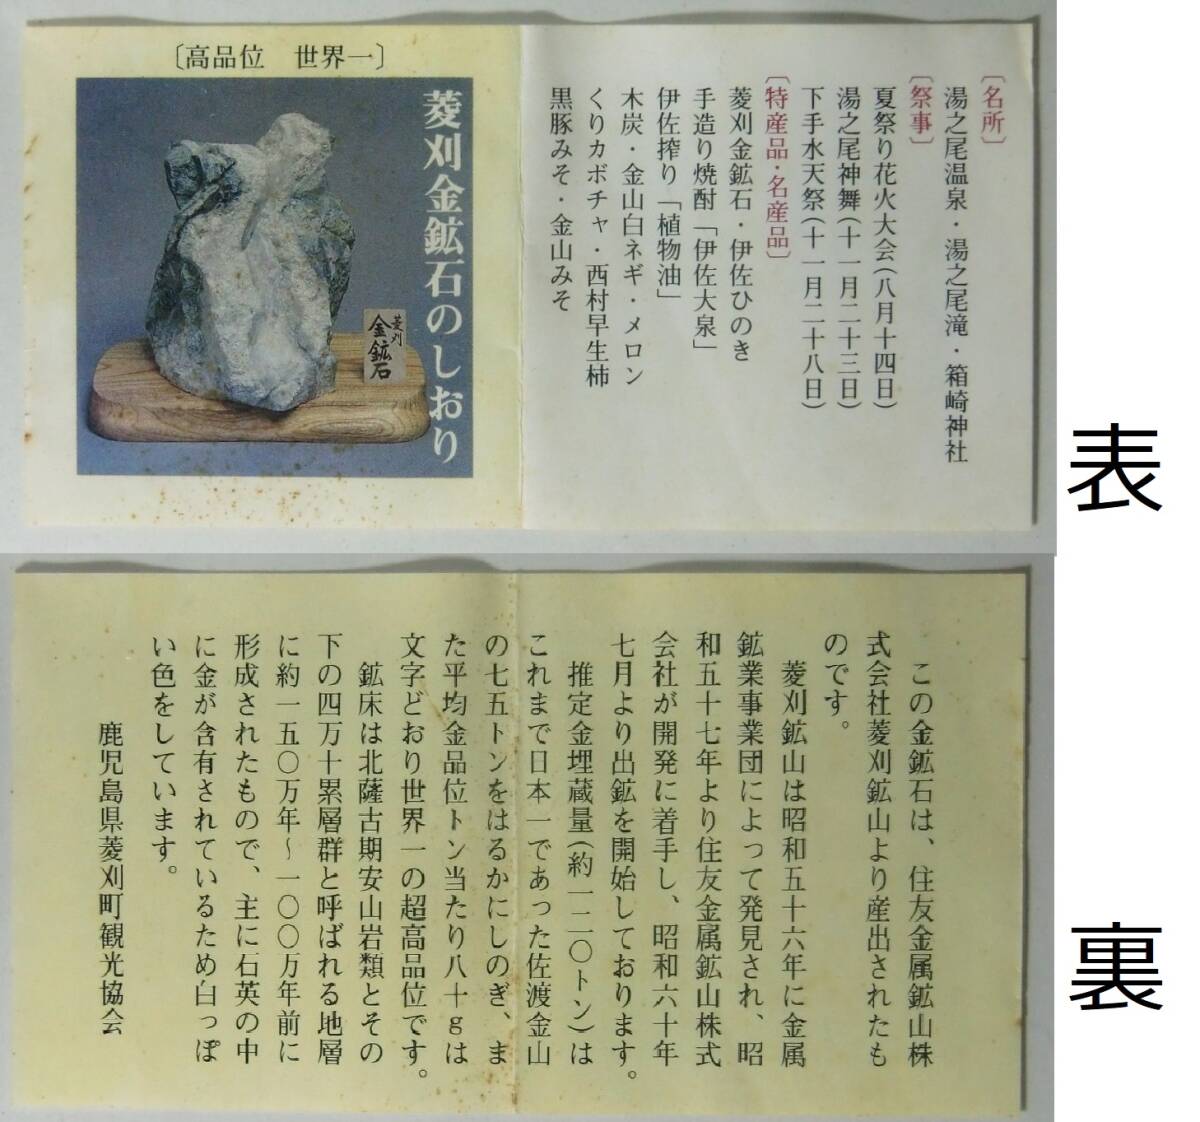 〔高品位　世界一〕
菱刈金鉱石のしおり
菱刈
金鉱石
〔名所〕
湯之尾温泉・湯之尾滝・箱崎神社
〔祭事〕
夏祭り花火大会(八月十四日)
湯之尾神舞(十一月二十三日)
下手水天祭(十一月二十八日)
〔特産品・名産品〕
菱刈金鉱石・伊佐ひのき
手造り焼酎「伊佐大泉」
伊佐搾り「植物油」
木炭・金山白ネギ・メロン
くりカボチャ・西村早生柿
黒豚みそ・金山みそ
表
この金鉱石は、住友金属鉱山株
式会社菱刈鉱山より産出されたも
のです。
菱刈鉱山は昭和五十六年に金属
鉱業事業団によって発見され、昭
和五十七年より住友金属鉱山株式
会社が開発に着手し、昭和六十年
七月より出鉱を開始しております。
推定金埋蔵量(約一二〇トン)は
これまで日本一であった佐渡金山
の七五トンをはるかにしのぎ、ま
た平均金品位トン当たり八十gは
文字どおり世界一の超高品位です。
鉱床は北薩古期安山岩類とその
下の四万十累層群と呼ばれる地層
に約一五〇万年～一〇〇万年前に
形成されたもので、主に石英の中
に金が含有されているため白っぽ
い色をしています。
鹿児島県菱刈町観光協会
裏